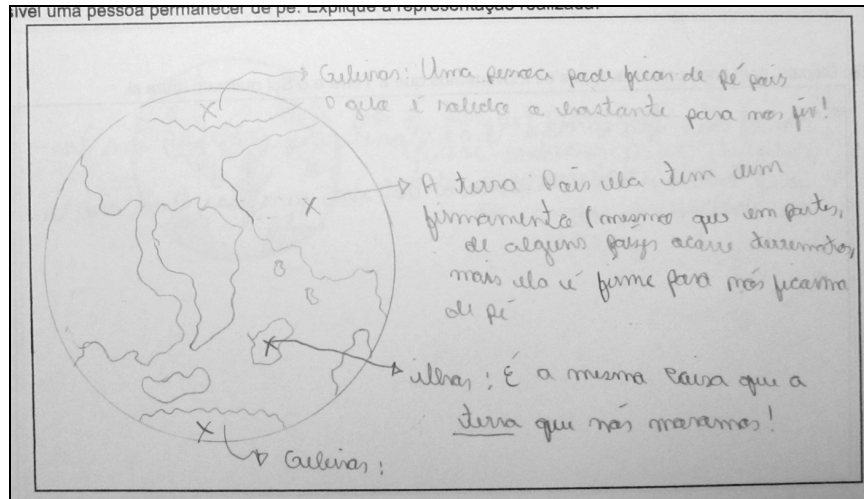 sível uma pessoa permanecer de pé. Explique a representação realizada.
Geleiras: Uma pessoa pode ficar de pé pois
o gelo é solido o bastante para nos
A terra Pois ela tem um
firmamento (mesmo que em partes,
de alguns países ocorre terremotos,
mais ela é firme para nós ficarmo
de pé
B
B
ilhas: É a mesma coisa que a
terra que nós moramos!
Geleiras: